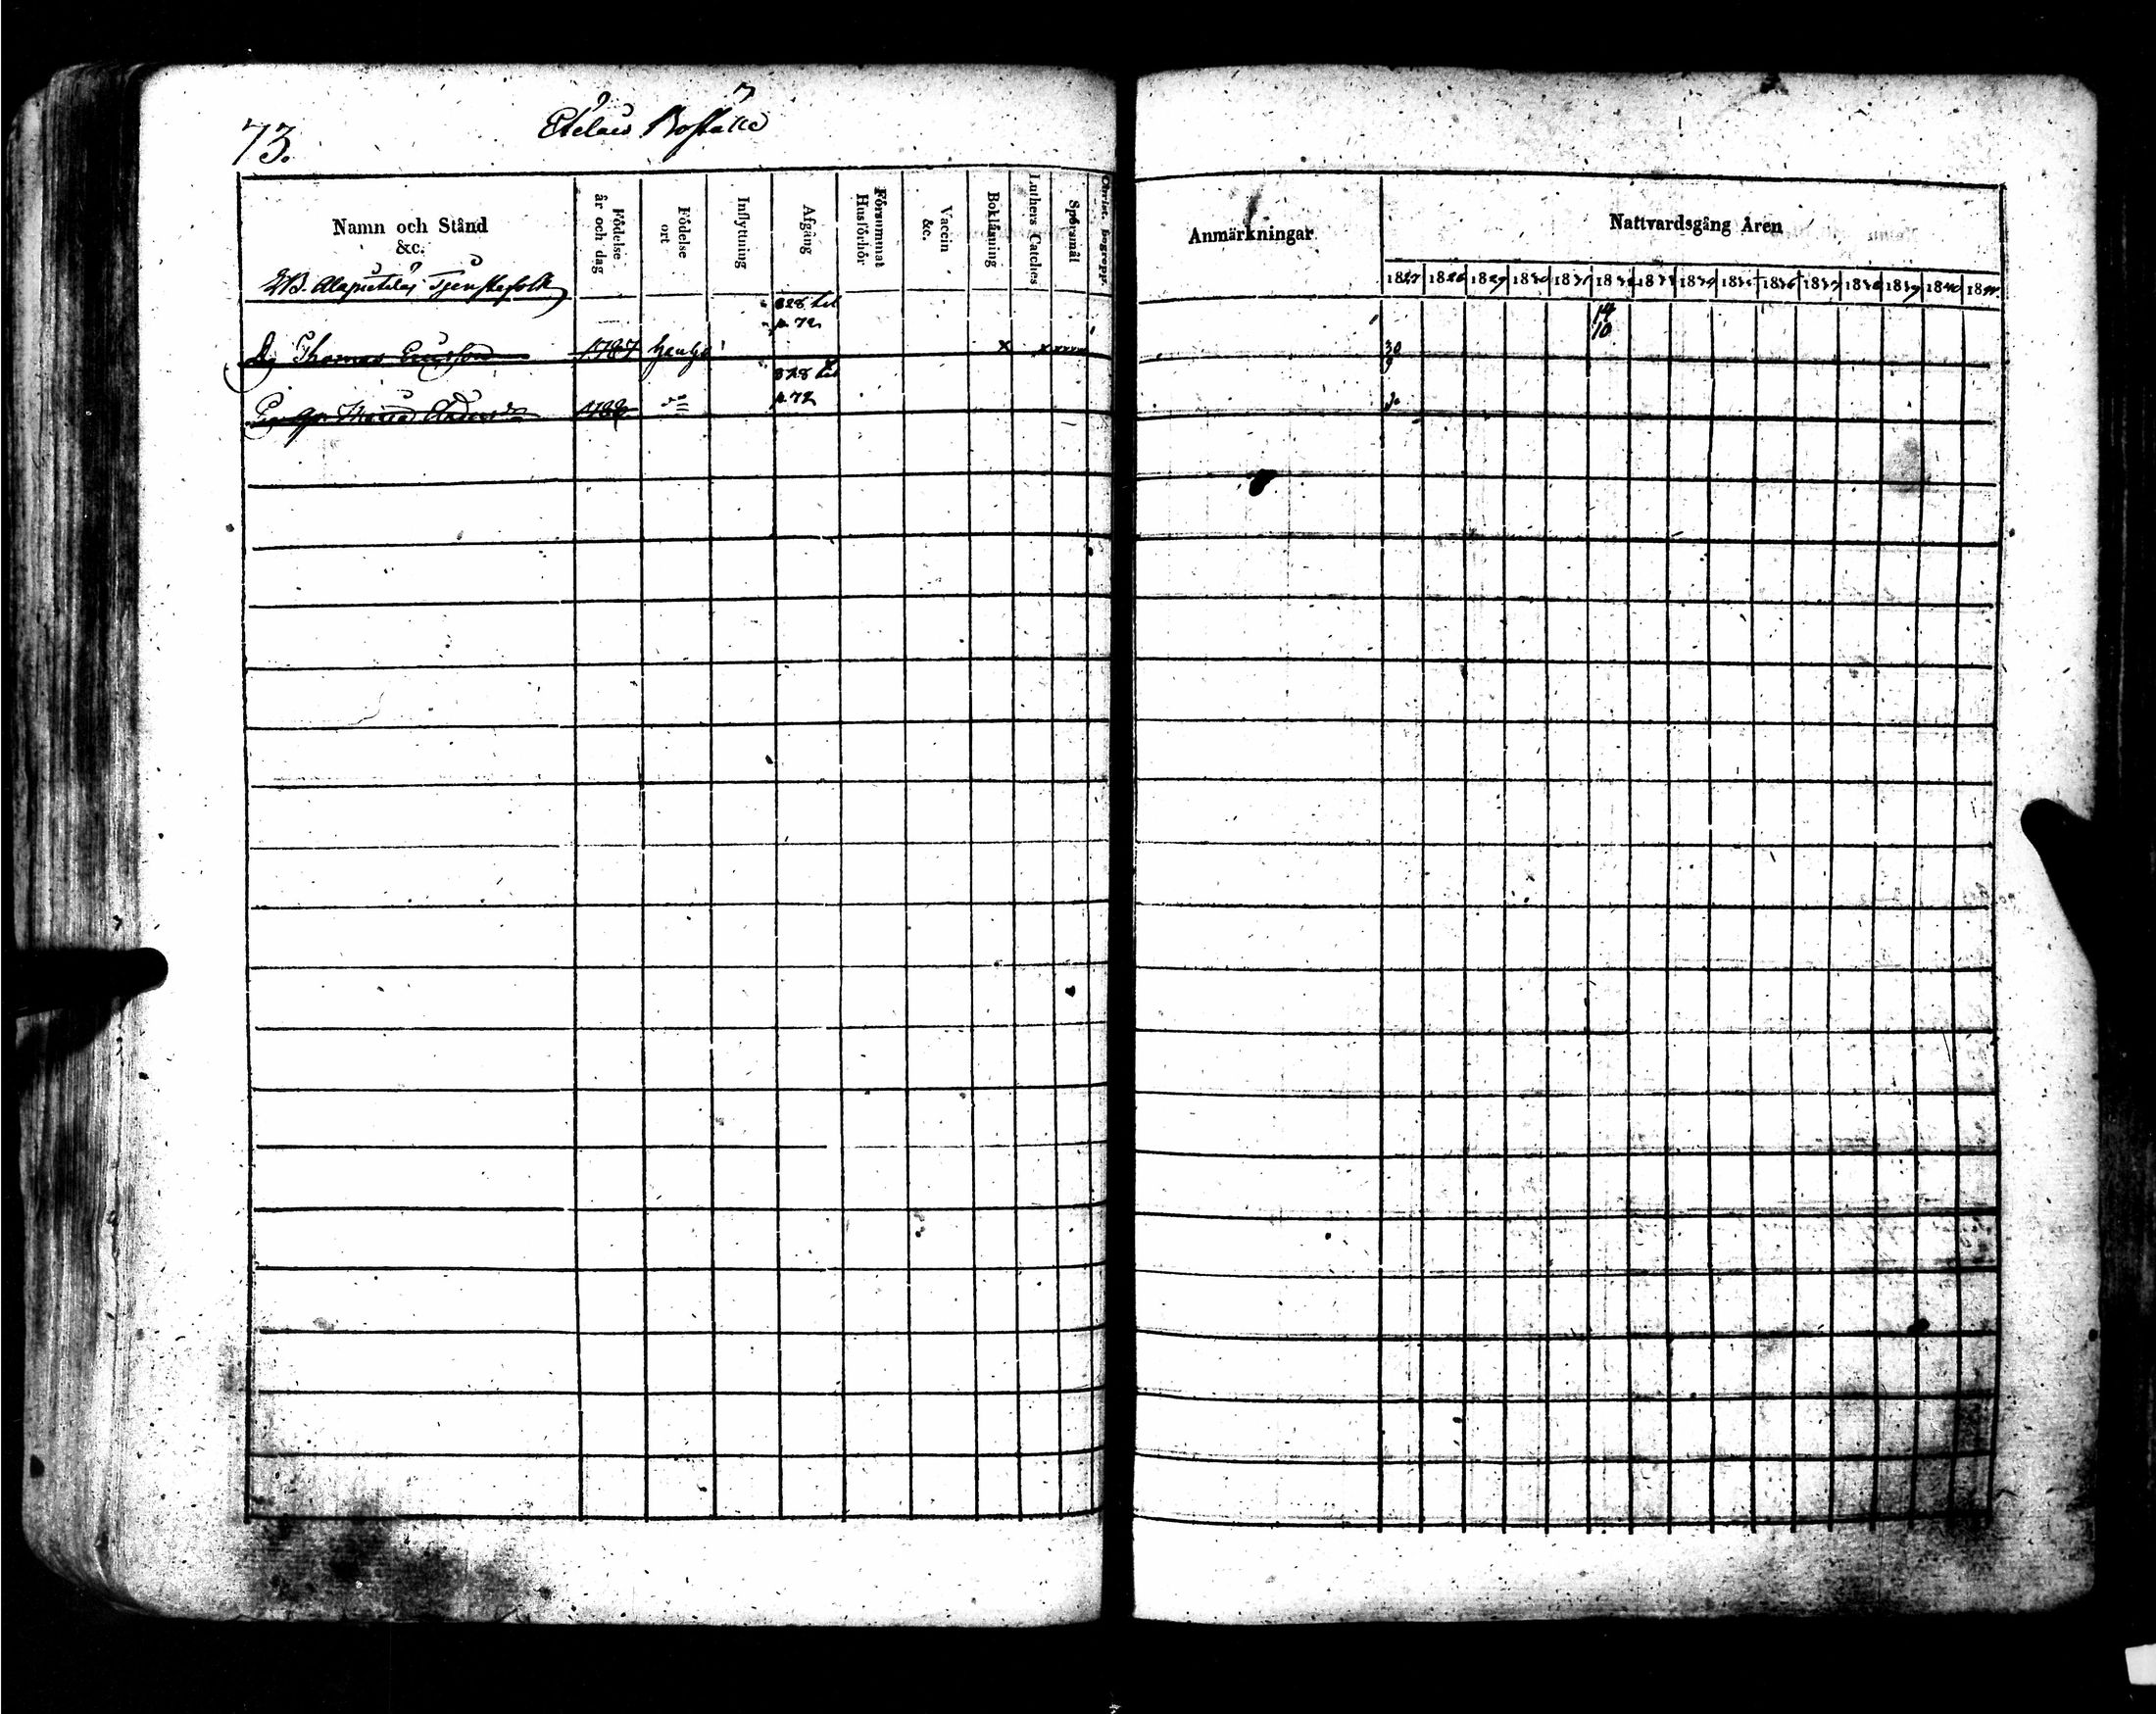 73.
Etelais Boställe
Namn och Stånd
&c.
Födelse
år och dag
Födelse
ort
Inflyttning
Afgång
Försummat
Husförhör
Vaccin
&c.
Bokläsning
Luthers Catches
Spörsmål
Christ. begrepp.
Anmärkningar
Nattvardsgång Åren
1827 1828 1829 1830 1831 1832 1833 1834 1835 1836 1837 1838 1839 1840 1841
Tjenstefolk
828 til
p. 72
14
10
Thomas Ericsson 1787 x x 30
9
828 til
p. 72
Maria Andersd.